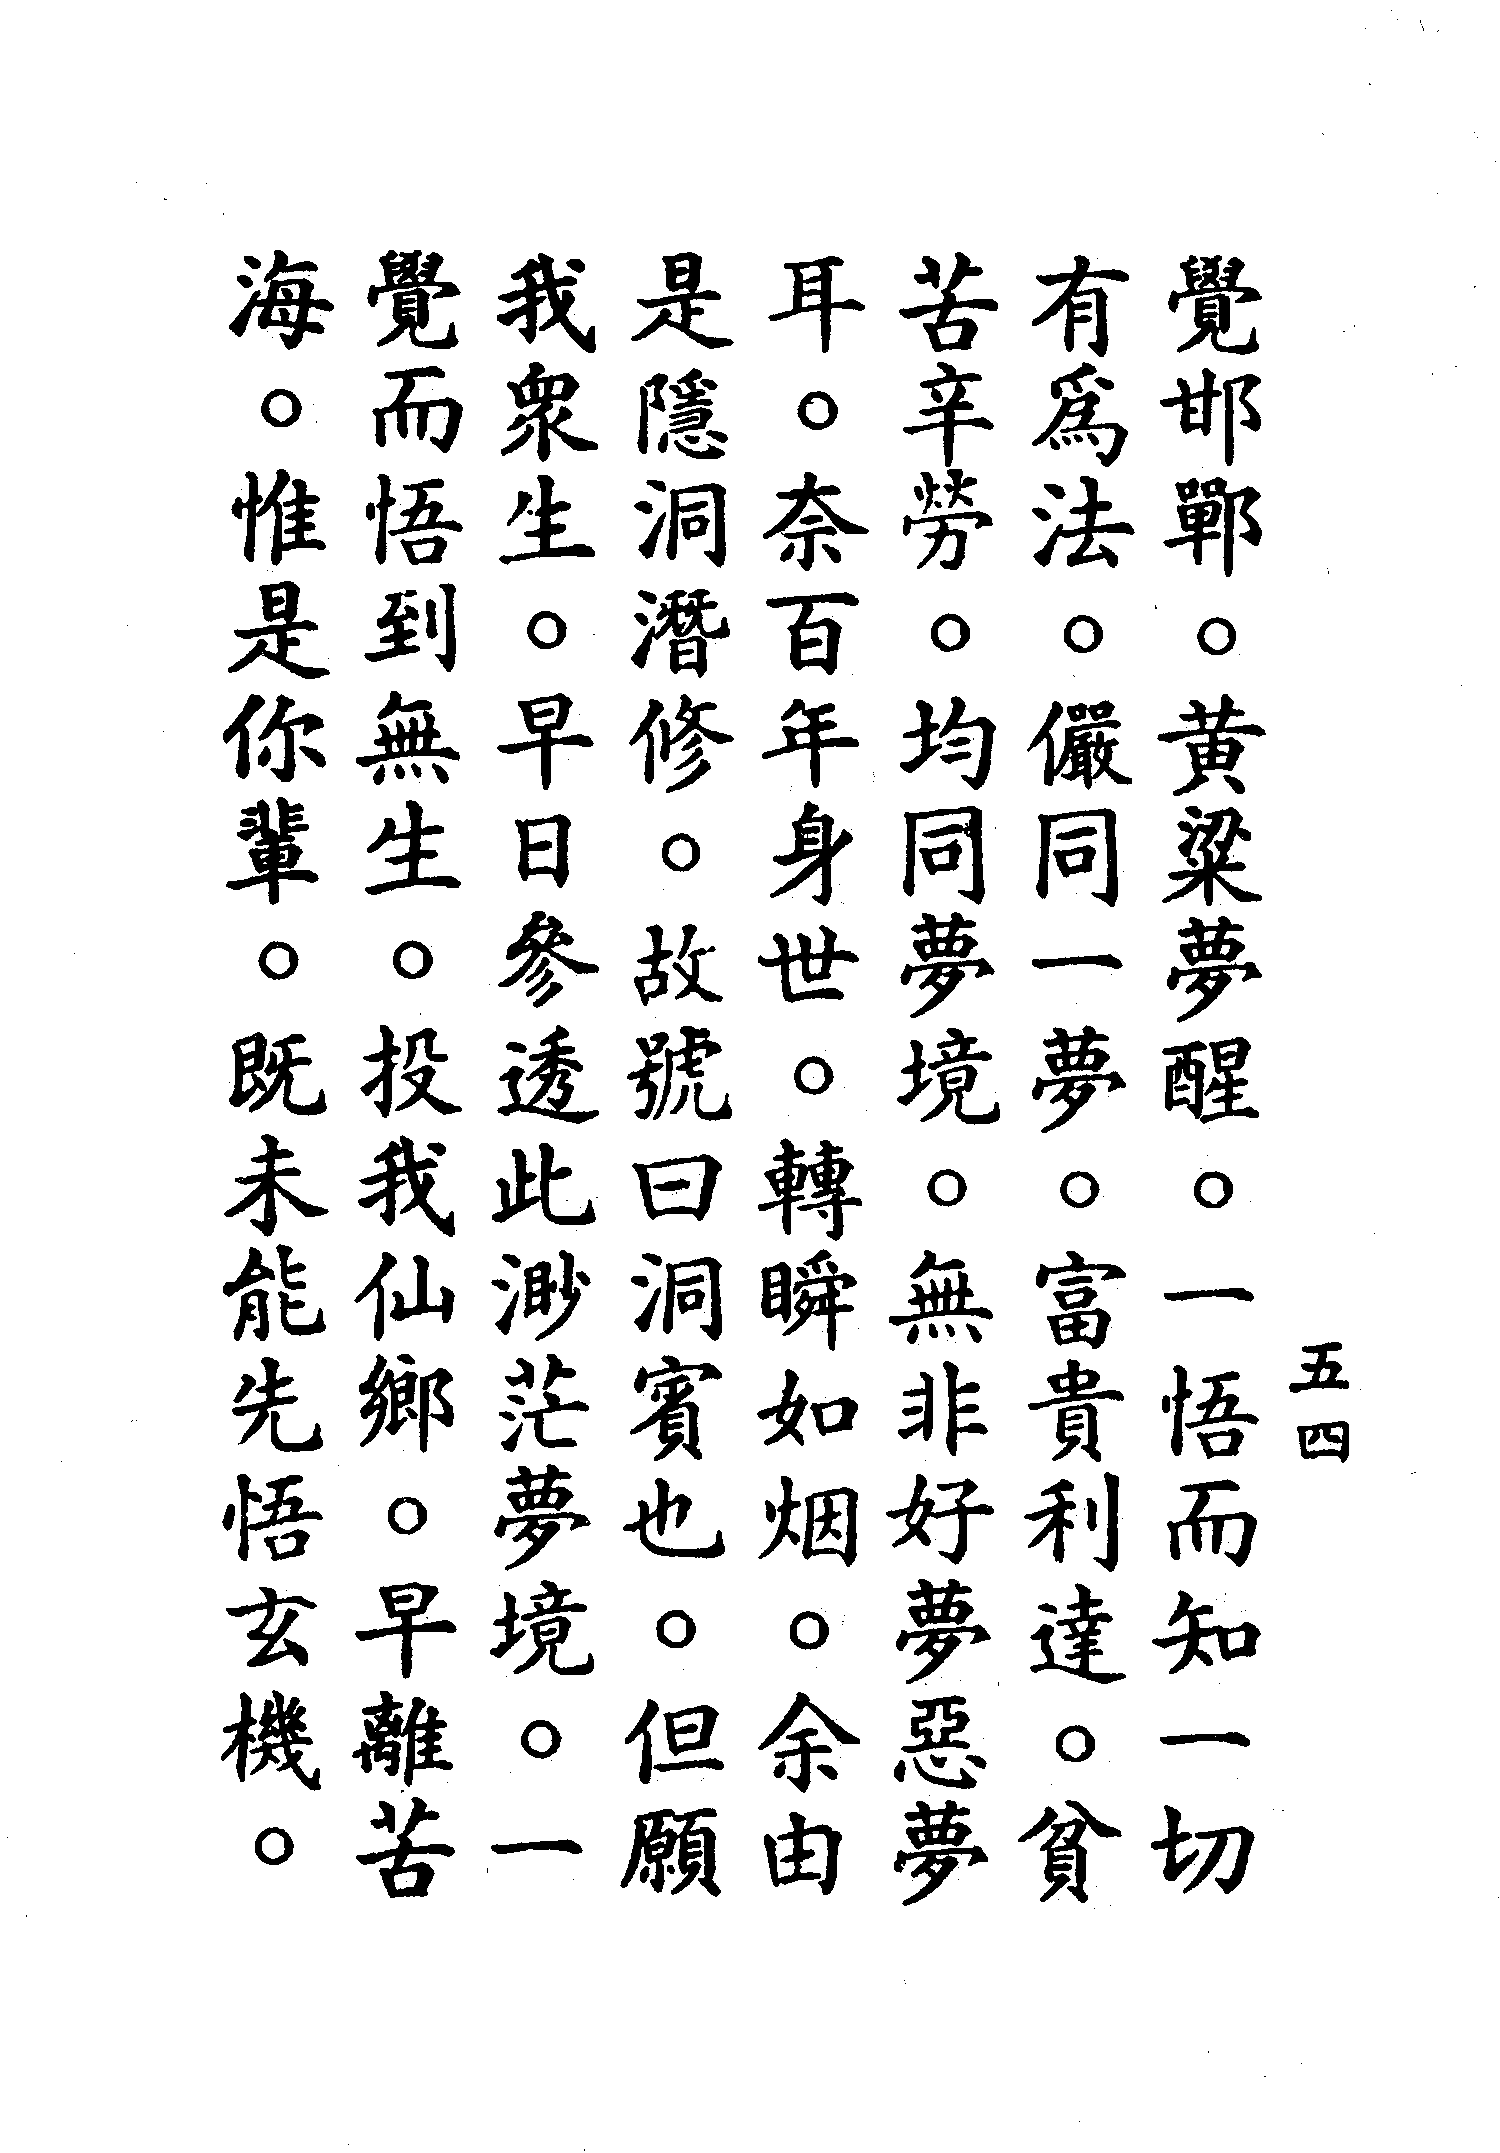 五四
覺邯鄲。黃粱夢醒。一悟而知一切
有爲法。儼同一夢。富貴利達。貧
苦辛勞。均同夢境。無非好夢惡夢
耳。奈百年身世。轉瞬如烟。余由
是隱洞潛修。故號曰洞賓也。但願
我衆生。早日參透此渺茫夢境。一
覺而悟到無生。投我仙鄉。早離苦
海。惟是你輩。既未能先悟玄機。